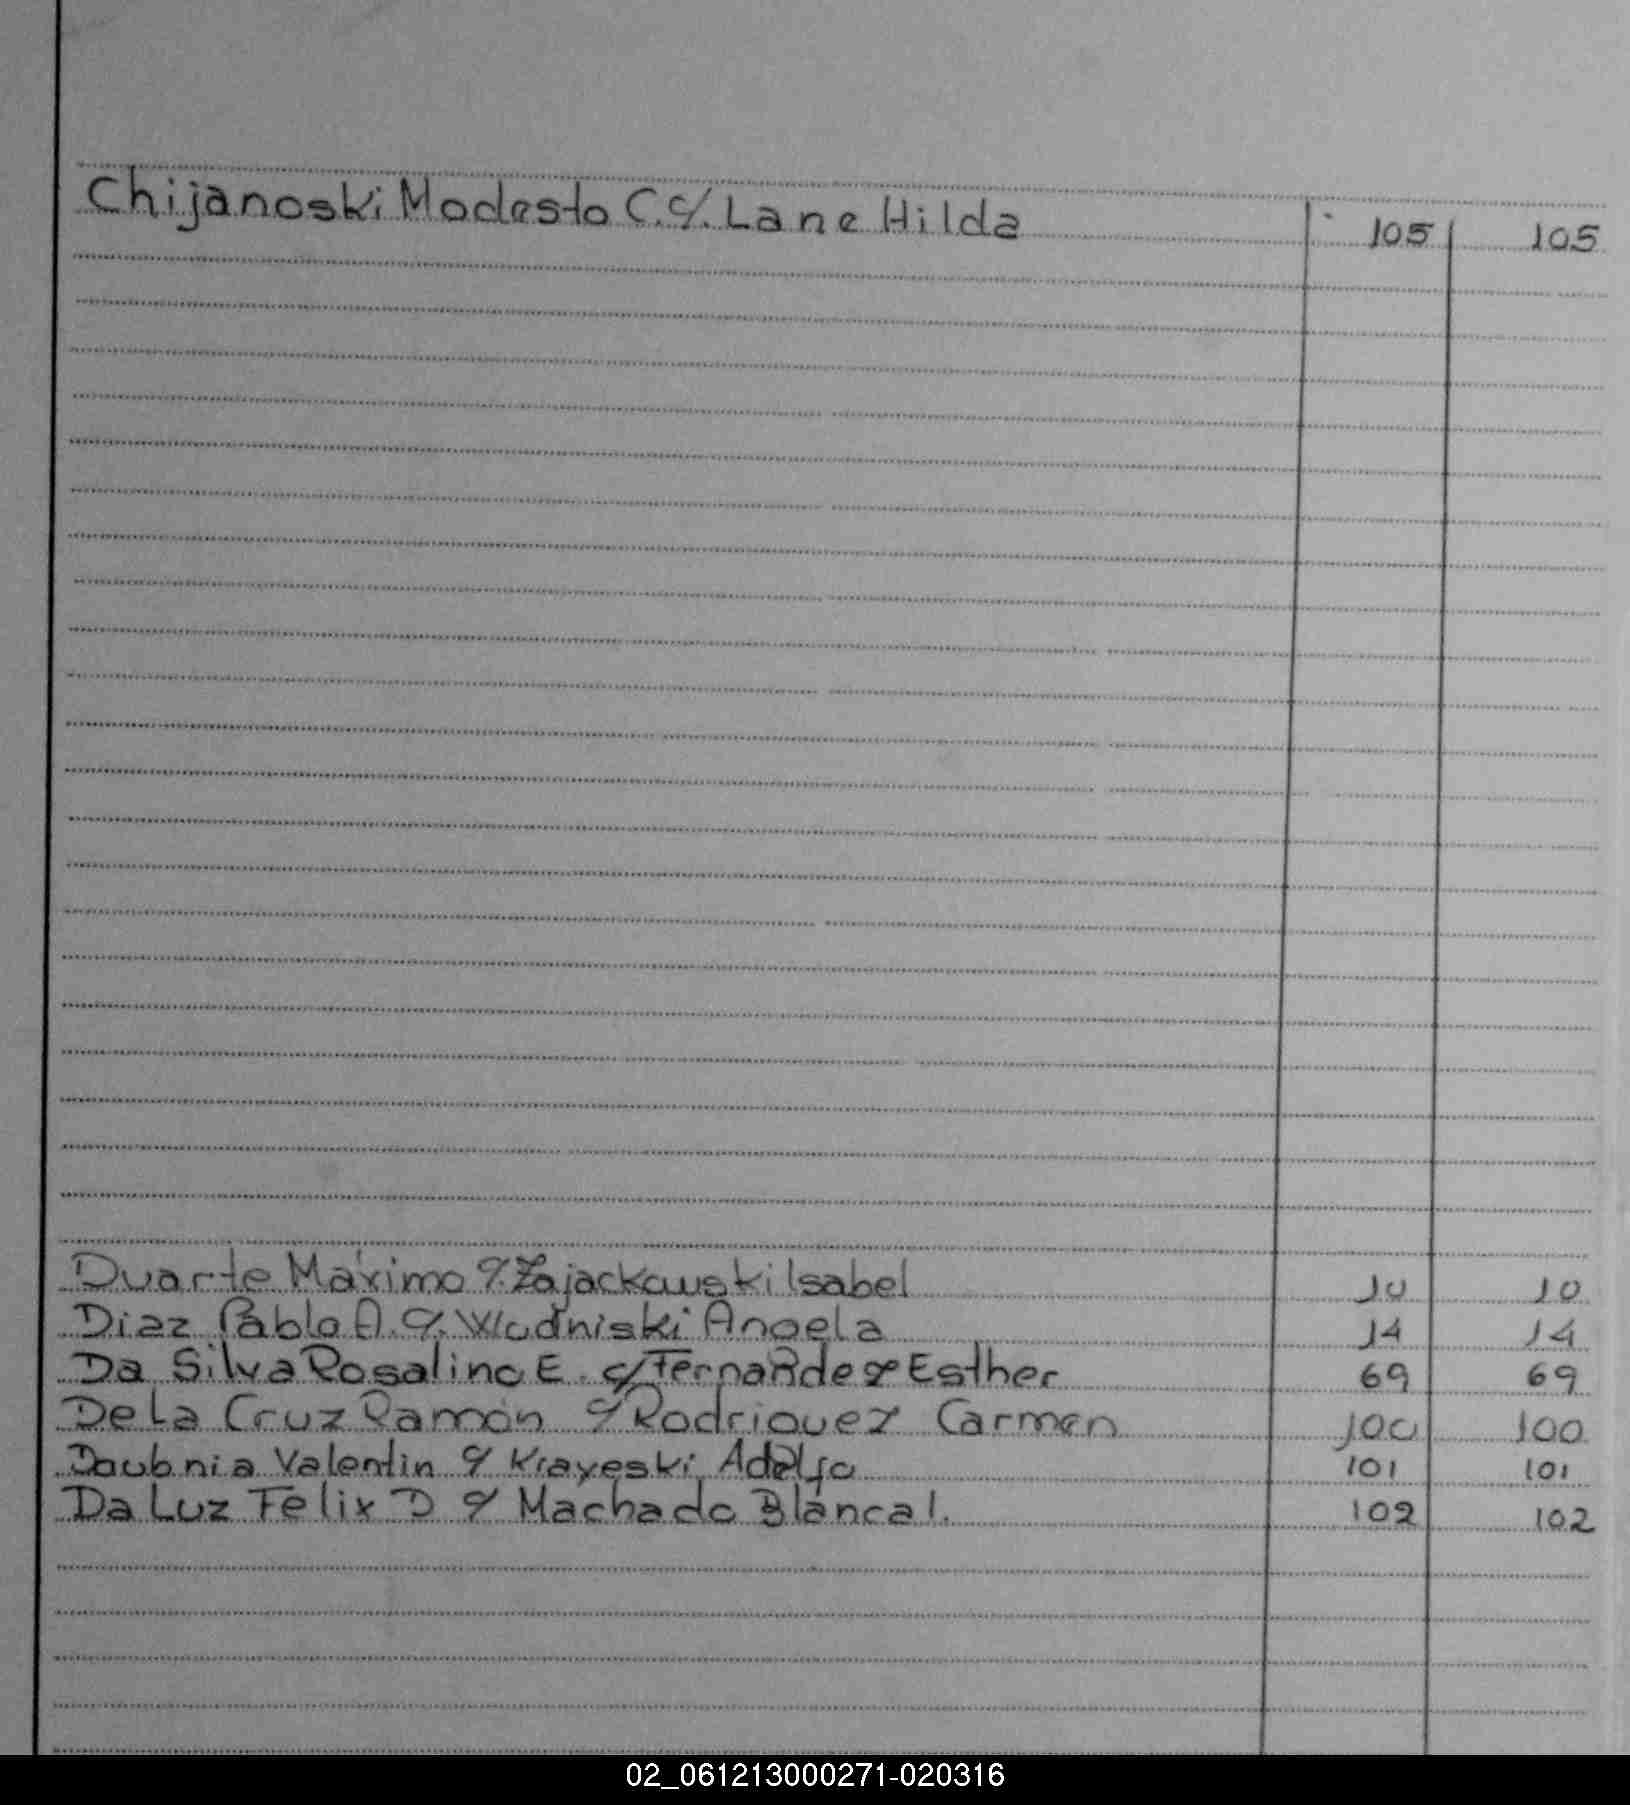 Chijanoski Modesto C. c/. Lane Hilda 105 105
Duarte Máximo c/. Zajackowski Isabel 10 10
Diaz Pablo A. c/. Wodniski Angela 14 14
Da Silva Rosalino E. c/ Fernandez Esther 69 69
De La Cruz Ramón c/ Rodriguez Carmen 100 100
Doubnia Valentin c/ Krayeski Adolfo 101 101
Da Luz Felix D c/ Machado Blanca I. 102 102
02_061213000271-020316